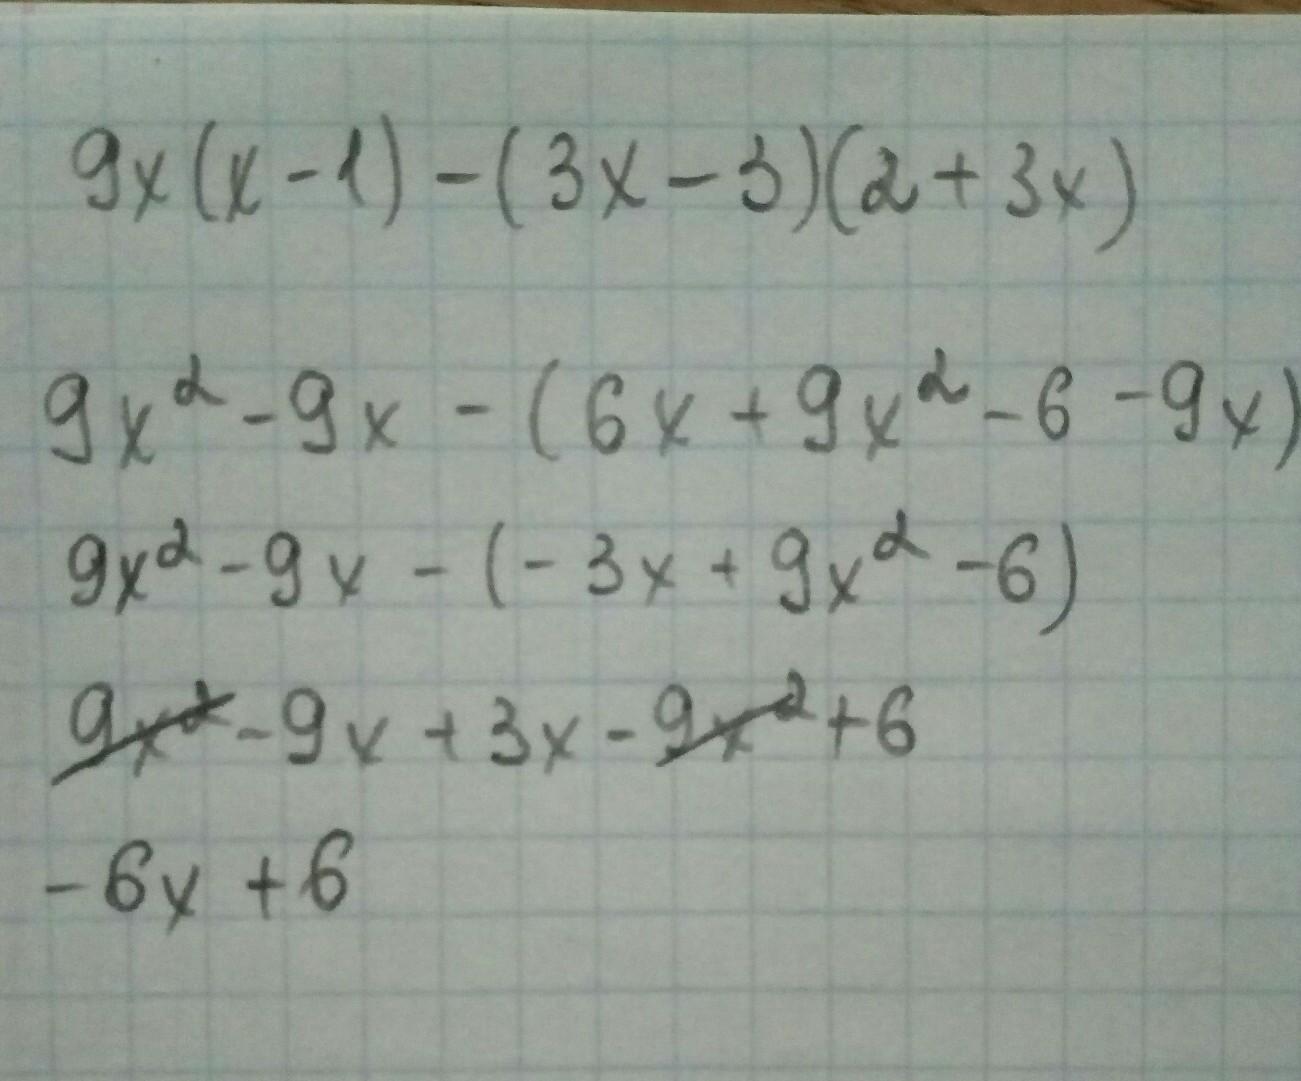 9x(x-1)-(3x-3)(2+3x)
9x²-9x-(6x+9x²-6-9x)
9x²-9x-(-3x+9x²-6)
9x²-9x+3x-9x²+6
-6x+6